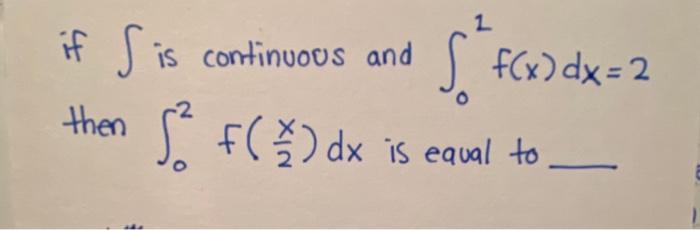 if ∫ is continuous and ∫₀¹ f(x) dx = 2
then ∫₀² f(x/2) dx is equal to ___